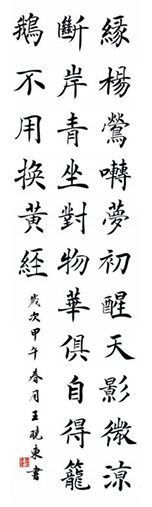 緣楊鶯囀夢初醒天影微涼
斷岸青坐對物華俱自得籠
鵝不用換黃経
歲次甲午春月王曉東書